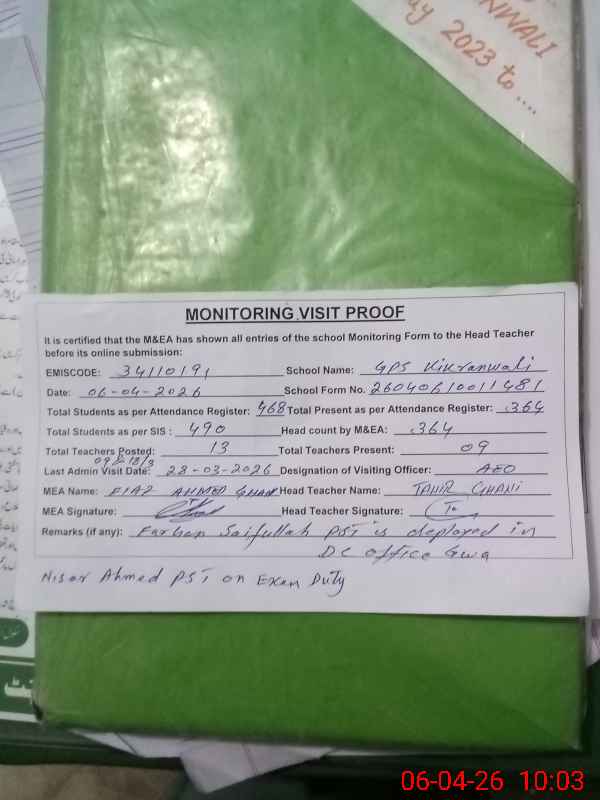 NWALI
2023 to ....
MONITORING VISIT PROOF
It is certified that the M&EA has shown all entries of the school Monitoring Form to the Head Teacher
before its online submission:
EMISCODE: 34110191 School Name: GPS Kikranwali
Date: 06-04-2026 School Form No. 26040610011481
Total Students as per Attendance Register: 468 Total Present as per Attendance Register: 364
Total Students as per SIS : 490 Head count by M&EA: 364
Total Teachers Posted: 13 Total Teachers Present: 09
Last Admin Visit Date: 28-03-2026 Designation of Visiting Officer: AEO
MEA Name: FIAZ AHMED GHANI Head Teacher Name: TAHIR GHANI
MEA Signature: Head Teacher Signature:
Remarks (if any): Farhan Saifullah PST is deployed in
DC office Gwa
Nisar Ahmed PST on Exam Duty
06-04-26 10:03